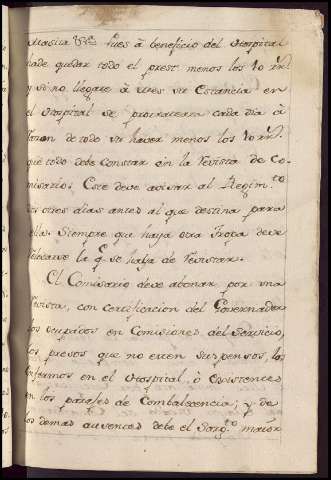 fues à beneficio del Ospital
hade quedar todo el prest menos los 10 rr.ˢ
y si no llegare à mes su Estancia en
el Ospital se prorrateara cada dia à
razon de todo su haver menos los 10 rr.ˢ
que todo debe constar en la revista de Co-
misarios. Este deve avisar al Regim.ᵗᵒ
dos otres dias antes al que destina para
ella. Siempre que haya otra Tropa deve
relevarse la q.ᵉ se halja de revistar.
El Comisario deve abonar por una
revista, con certificacion del Governador
los ocupados en Comisiones del servicio,
los presos que no esten suspensos, los
enfermos en el Ospital, ò Existentes
en los parajes de Combalecencia; y de
los demas ausentes debe el Sarg.ᵗᵒ maior